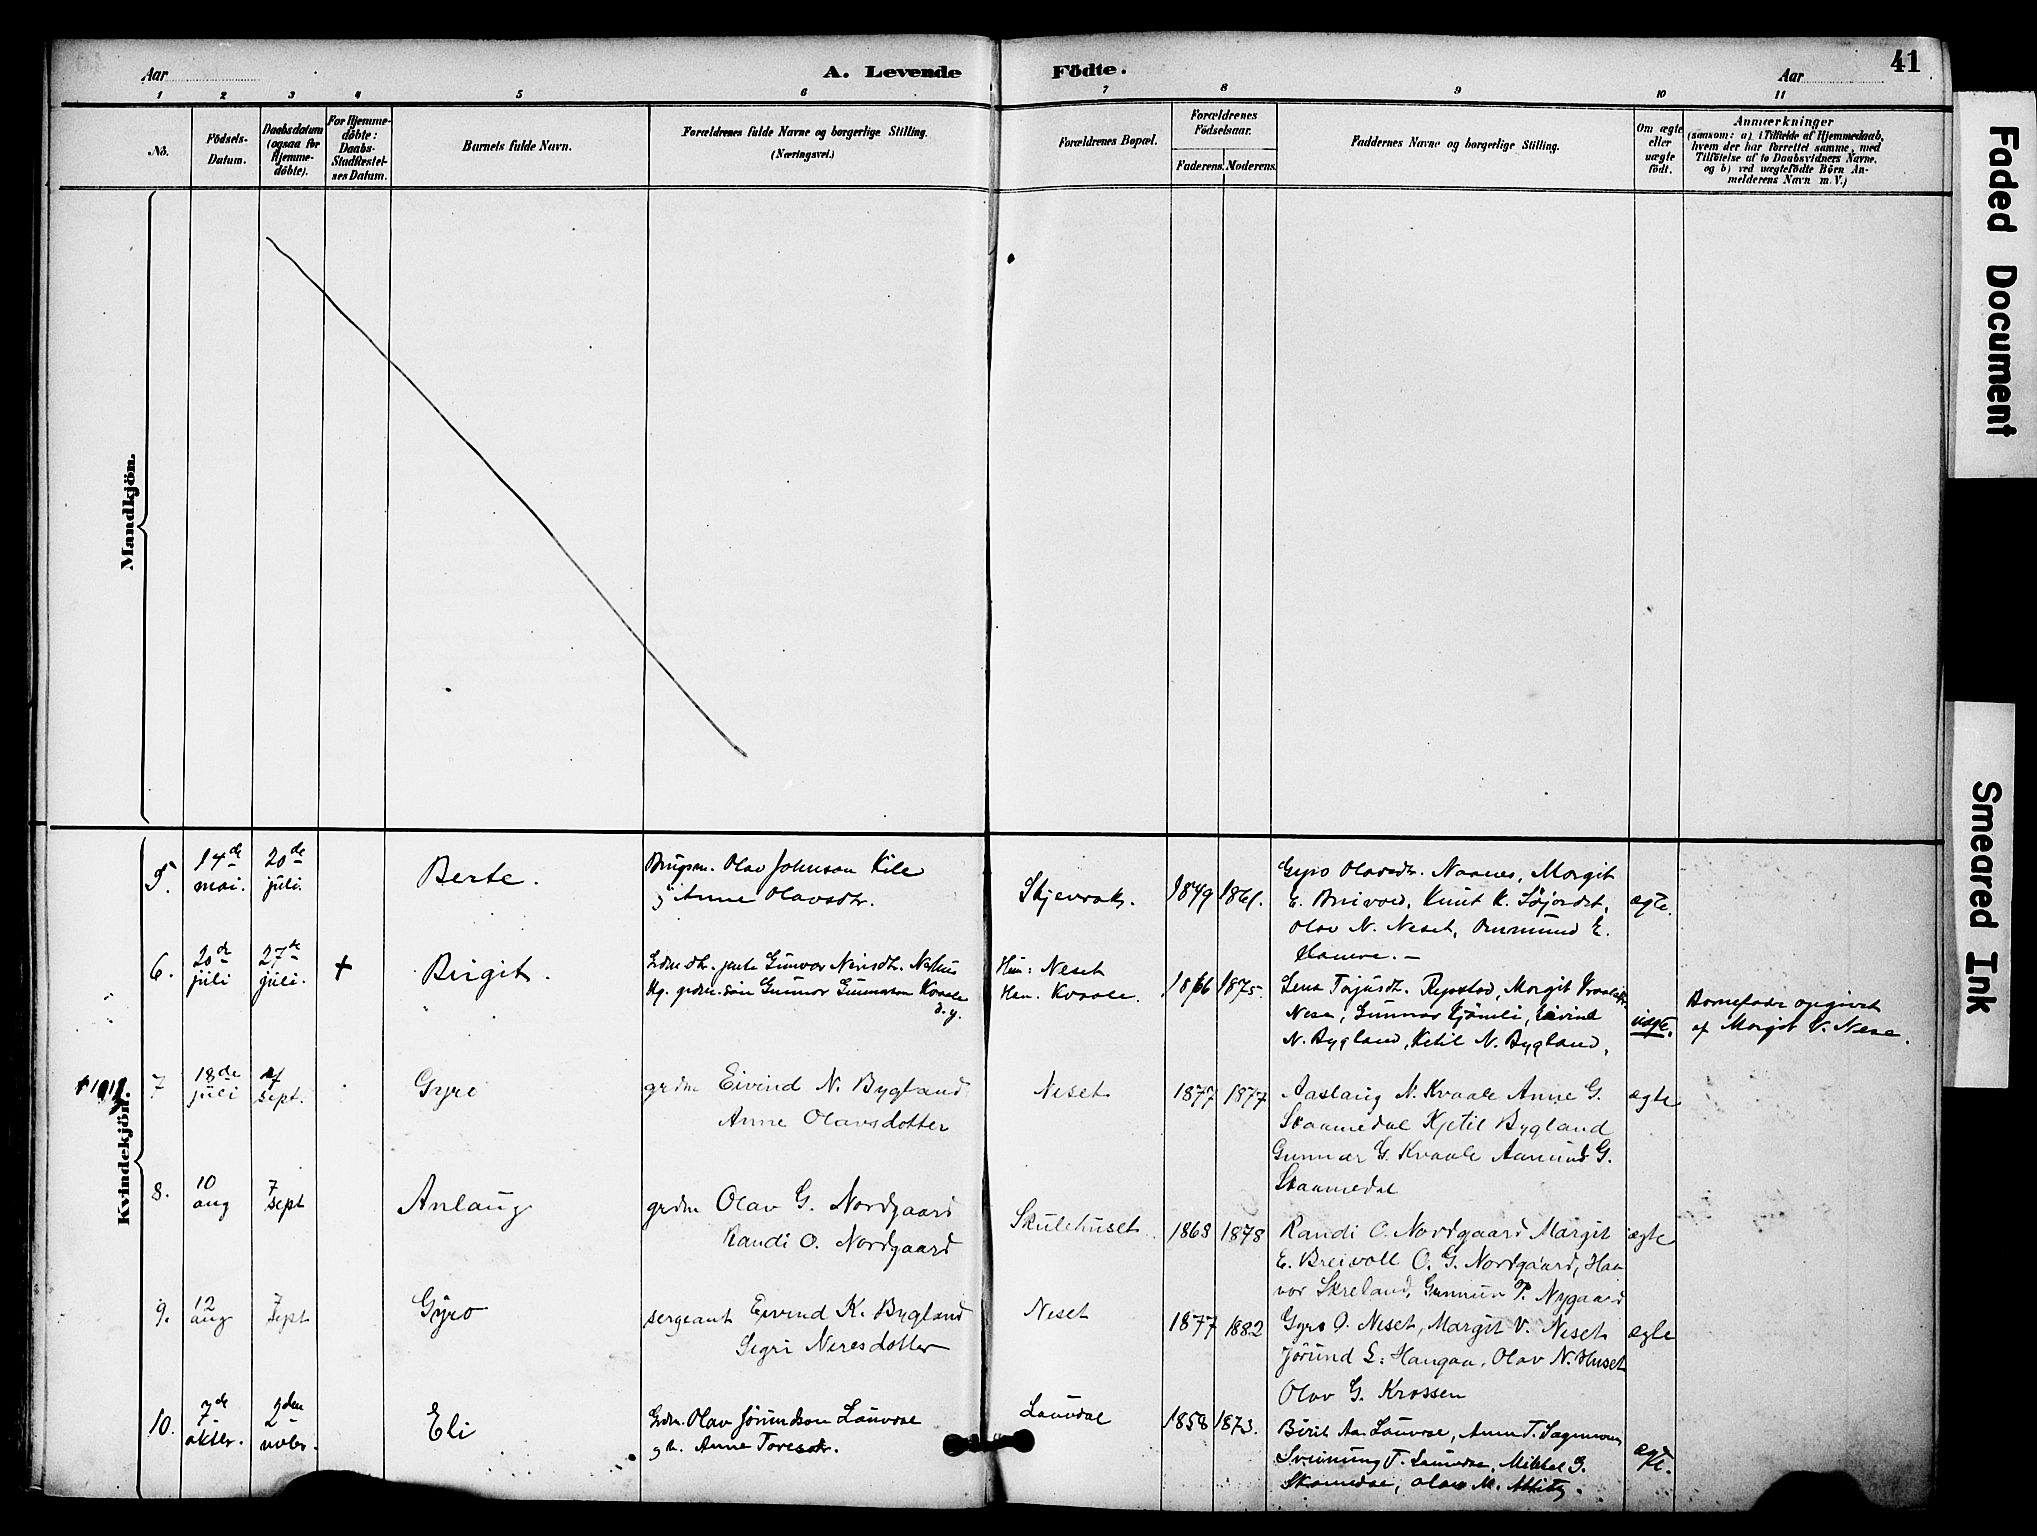 41
Aar
A. Levende Födte.
Aar
1 2 3 4 5 6 7 8 9 10 11
No.
Födsels-
Datum.
Daabsdatum
(ogsaa for
Hjemme-
döbte).
For Hjemme-
döbte:
Daabs-
Stadfæstel-
ses Datum.
Barnets fulde Navn.
Forældrenes fulde Navne og borgerlige Stilling.
(Næringsvei.)
Forældrenes Bopæl.
Forældrenes
Födselsaar.
Faderens. Moderens.
Faddernes Navne og borgerlige Stilling.
Om ægte
eller
uægte
födt.
Anmærkninger
(saasom: a) i Tilfælde af Hjemmedaab,
hvem der har forrettet samme, med
Tilföielse af to Daabsvidners Navne,
og b) ved uægtefödte Börn An-
melderens Navn m. V.)
Mandkjön.
Kvindekjön.
5.
14de
mai.
20de
juli.
Berte.
Brugsm. Olav Johnson Kile
g Anne Olavsdtr.
Skjevrak.
1849 1861.
Gyro Olavsdtr. Naanes, Margit
E. Breivold, Knut K.
Olav N. Neset, Aamund E.
ægte.
6.
20de
juli
27de
juli.
+
Birgit.
Gunvor
Gunnar Gunnarson Kvaale
d. y.
Hun: Neset
Han: Kvaale.
1866 1875.
Margit
Nese, Gunnar Eivind
N. Bygland, Ketil N. Bygland,
uægte.
Barnefader opgivet
af Margit V. Nese.
7
18de
juli
sept.
Gyro
grdm Eivind N. Bygland
Anne Olavsdotter
Neset
1877 1877
Aaslaug N. Kvaale Anne G.
Skaamedal Kjetil Bygland
Gunnar G. Kvaale Aamund G.
Skaamedal
ægte
8.
10
aug
7
sept
Anlaug
grdm Olav G. Nordgaard
Randi O. Nordgaard
Skulehuset
1868 1878
Randi O. Nordgaard Margit
E. Breivoll O. G. Nordgaard, Haa
vor Skreland, Gunnun T. Nygaard
ægte
9.
12
aug
7
sept
Gyro
sergeant Eivind K. Bygland
Sigri Neresdotter
Neset
1877 1882
Gyro O. Neset, Margit V. Neset
Jørund L. Haugaa, Olav N. Huset
Olav G. Krossen
ægte
10.
7de
oktbr.
2den
novbr.
Eli
Grdm. Olav Jørundson Lauvdal
Anne Toresdtr.
Lauvdal
1858 1873.
Birit Aa. Lauvdal, Anne T.
Sveinung T. Lauvdal, Mikkel G.
Skomedal, Olav M.
ægte.
Faded Document
Smeared Ink